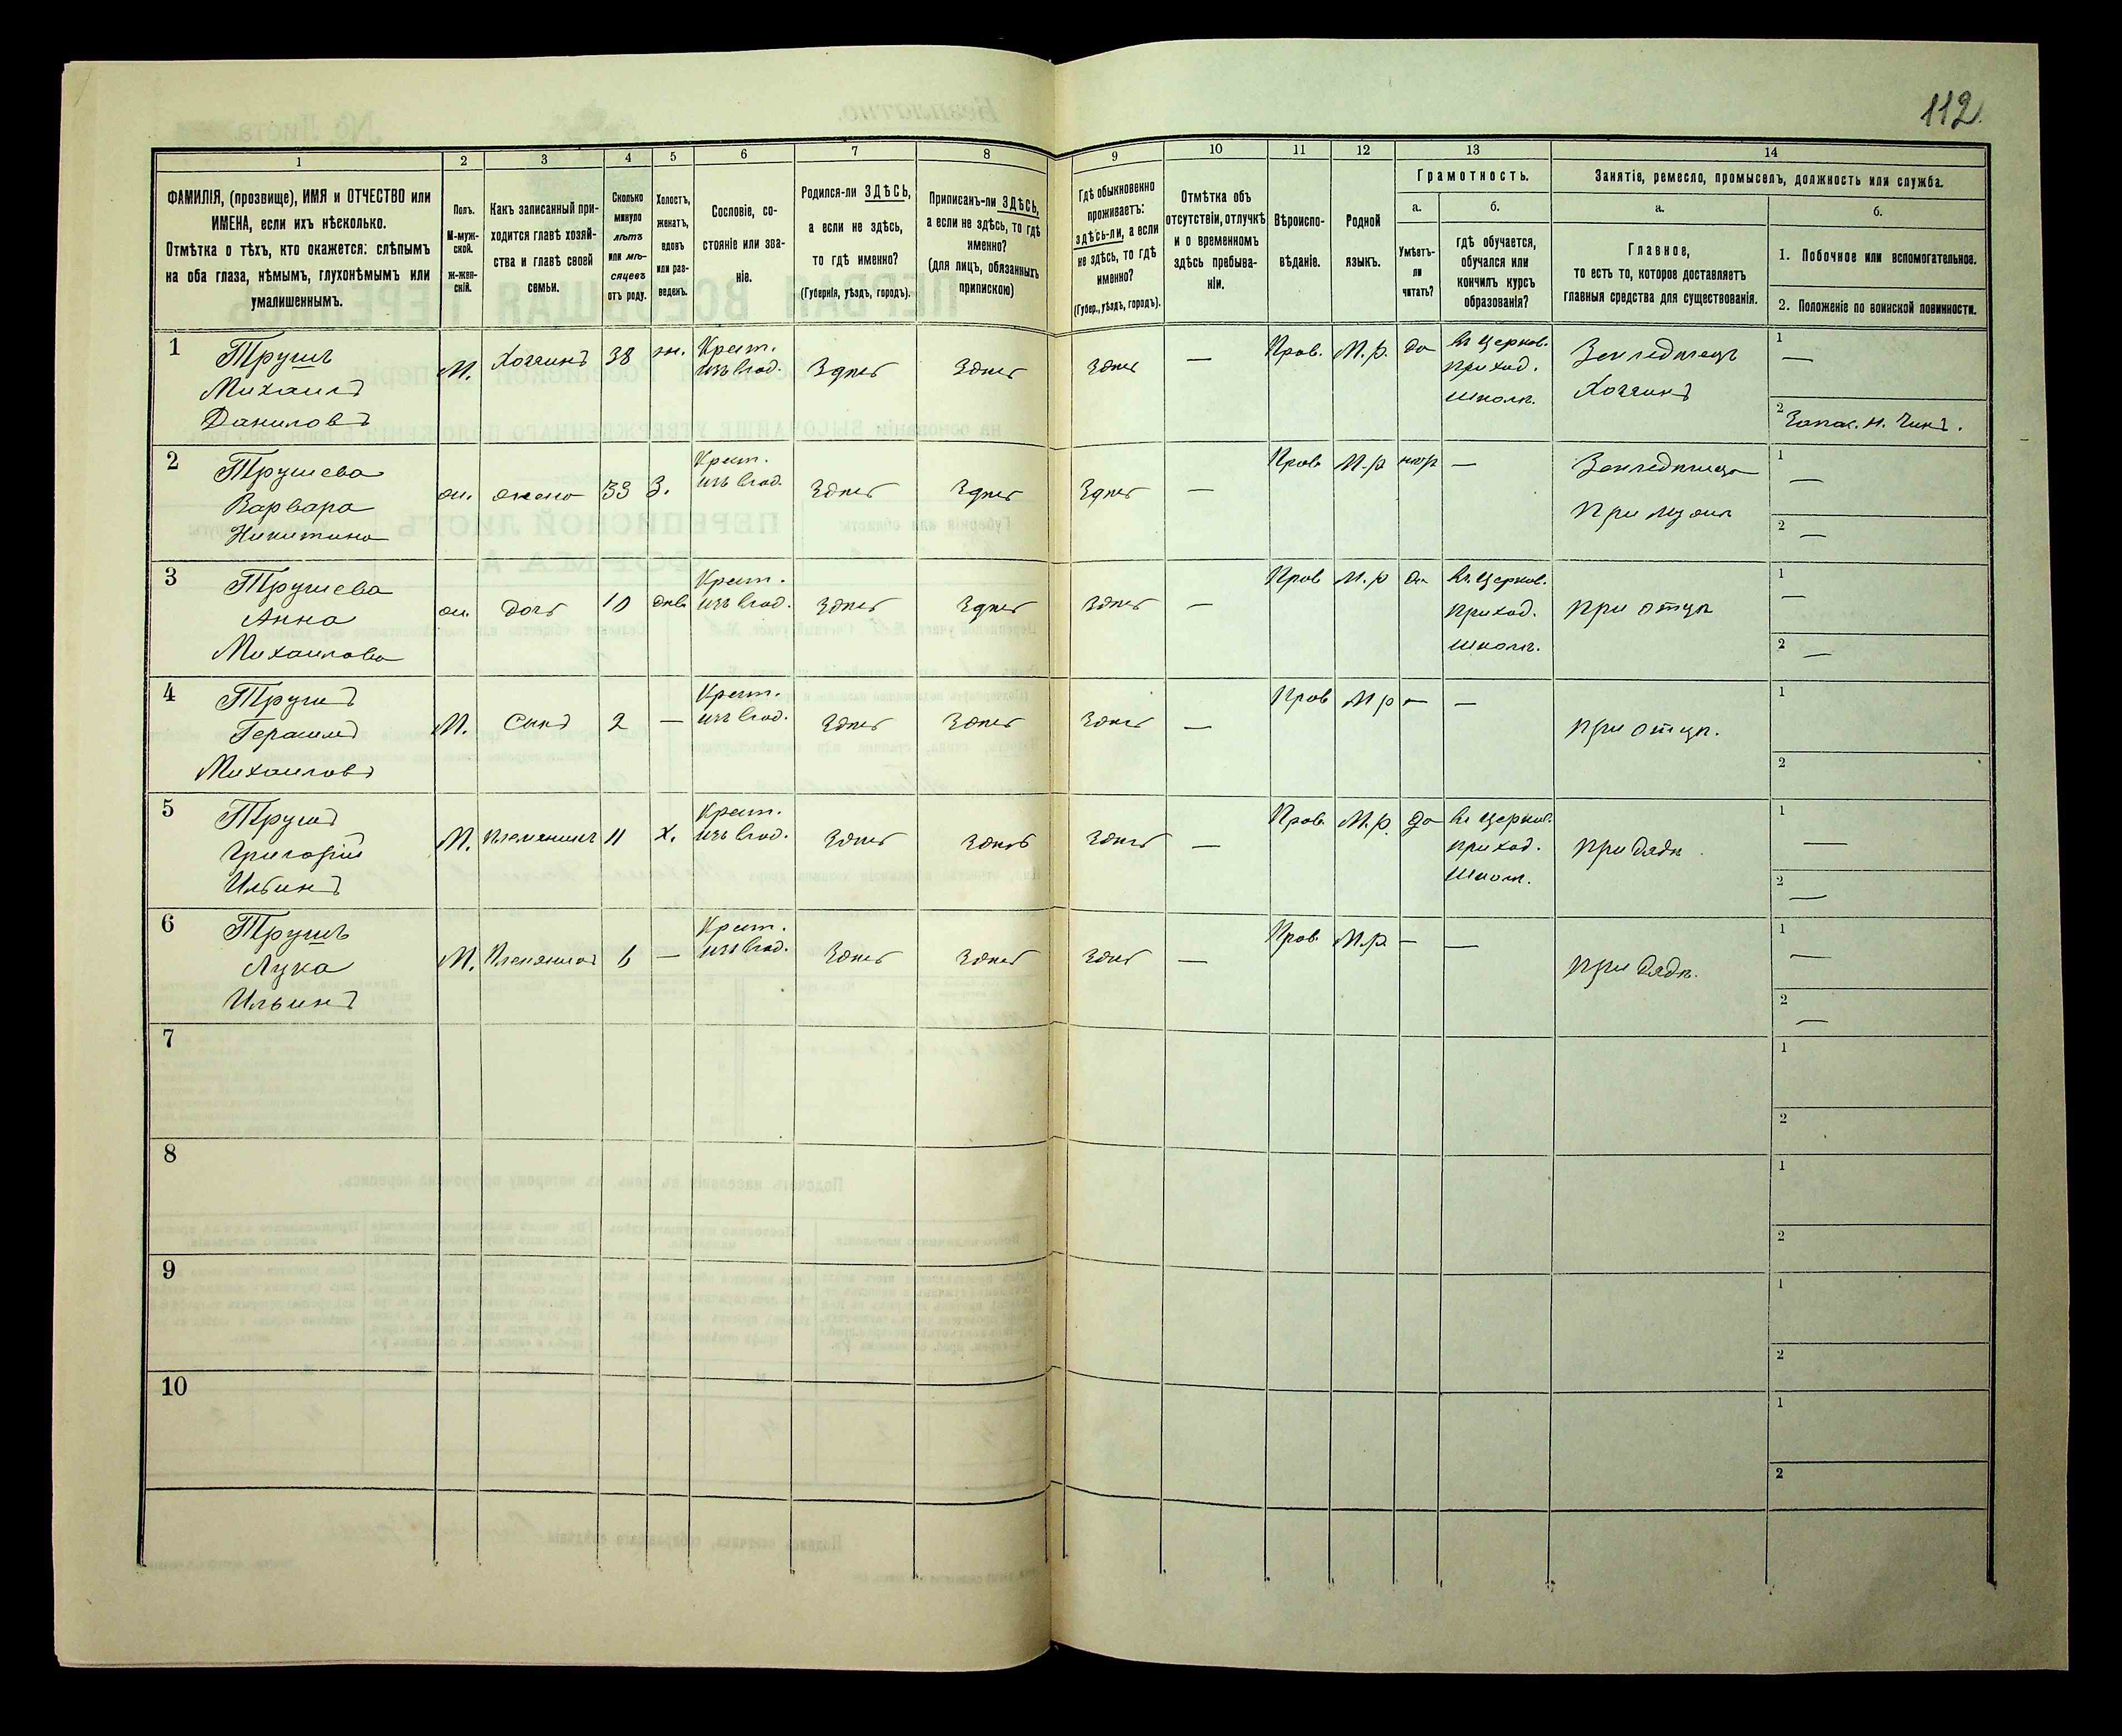 112.
1
2
3
4
5
6
7
8
9
10
11
12
13
14
ФАМИЛІЯ, (прозвище), ИМЯ и ОТЧЕСТВО или
ИМЕНА, если ихъ нѣсколько.
Отмѣтка о тѣхъ, кто окажется: слѣпымъ
на оба глаза, нѣмымъ, глухонѣмымъ или
умалишеннымъ.
Полъ.
М-муж-
ской.
ж-жен-
скій.
Какъ записанный при-
ходится главѣ хозяй-
ства и главѣ своей
семьи.
Сколько
минуло
лѣтъ
или мѣ-
сяцевъ
отъ роду.
Холостъ,
женатъ,
вдовъ
или раз-
веденъ.
Сословіе, со-
стояніе или зва-
ніе.
Родился-ли ЗДѢСЬ,
а если не здѣсь,
то гдѣ именно?
(Губернія, уѣздъ, городъ).
Приписанъ-ли ЗДѢСЬ,
а если не здѣсь, то гдѣ
именно?
(для лицъ, обязанныхъ
припискою)
Гдѣ обыкновенно
проживаетъ:
здѣсь-ли, а если
не здѣсь, то гдѣ
именно?
(Губер., уѣздъ, городъ).
Отмѣтка объ
отсутствіи, отлучкѣ
и о временномъ
здѣсь пребыва-
ніи.
Вѣроиспо-
вѣданіе.
Родной
языкъ.
Грамотность.
а.
Умѣетъ-
ли
читать?
б.
гдѣ обучается,
обучался или
кончилъ курсъ
образованія?
Занятіе, ремесло, промыселъ, должность или служба.
а.
Главное,
то есть то, которое доставляетъ
главныя средства для существованія.
б.
1. Побочное или вспомогательное.
2. Положеніе по воинской повинности.
1
Трушъ
Михаилъ
Даниловъ
М.
Хозяинъ
38
ж.
Крест.
изъ влад.
Здѣсь
Здѣсь
Здѣсь
—
Прав.
М.р.
да
въ церков.
приход.
школѣ.
Земледѣлецъ
Хозяинъ
1
—
2 Запас. н. чинъ.
2
Трушева
Варвара
Никитина
ж.
жена
33
З.
Крест.
изъ влад.
Здѣсь
Здѣсь
Здѣсь
—
Прав.
М.р
нѣтъ
—
При мужѣ
1
—
2
—
3
Трушева
Анна
Михаилова
ж.
дочь
10
дѣв.
Крест.
изъ влад.
Здѣсь
Здѣсь
Здѣсь
—
Прав
М.р
да
въ церков.
приход.
школѣ.
при отцѣ
1
—
2
—
4
Трушъ
Герасимъ
Михаиловъ
М.
Сынъ
2
—
Крест.
изъ влад.
Здѣсь
Здѣсь
Здѣсь
—
Прав
М р
—
—
при отцѣ.
1
2
5
Трушъ
Григорій
Ильинъ
М.
племянникъ
11
х.
Крест.
изъ влад.
Здѣсь
Здѣсь
Здѣсь
—
Прав.
М.р.
да
въ церков.
приход.
школѣ.
при дядѣ
1
—
2
—
6
Трушъ
Лука
Ильинъ
М.
Племянникъ
6
—
Крест.
изъ влад.
Здѣсь
Здѣсь
Здѣсь
—
Прав.
М.р.
—
—
при дядѣ.
1
—
2
—
7
1
2
8
1
2
9
1
2
10
1
2